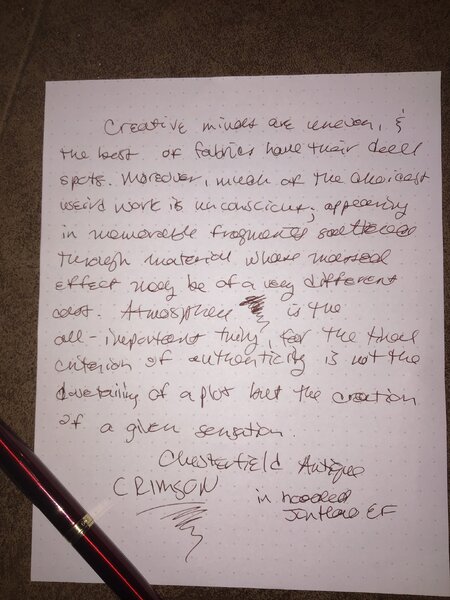 Creative minds are uneven, &
the best of fabrics have their dull
spots. Moreover, much of the choicest
weird work is unconscious; appearing
in memorable fragments scattered
through material whose massed
effect may be of a very different
cast. Atmosphere is the
all-important thing, for the final
criterion of authenticity is not the
dovetailing of a plot but the creation
of a given sensation.
Chesterfield Antique
CRIMSON in hooded
EF